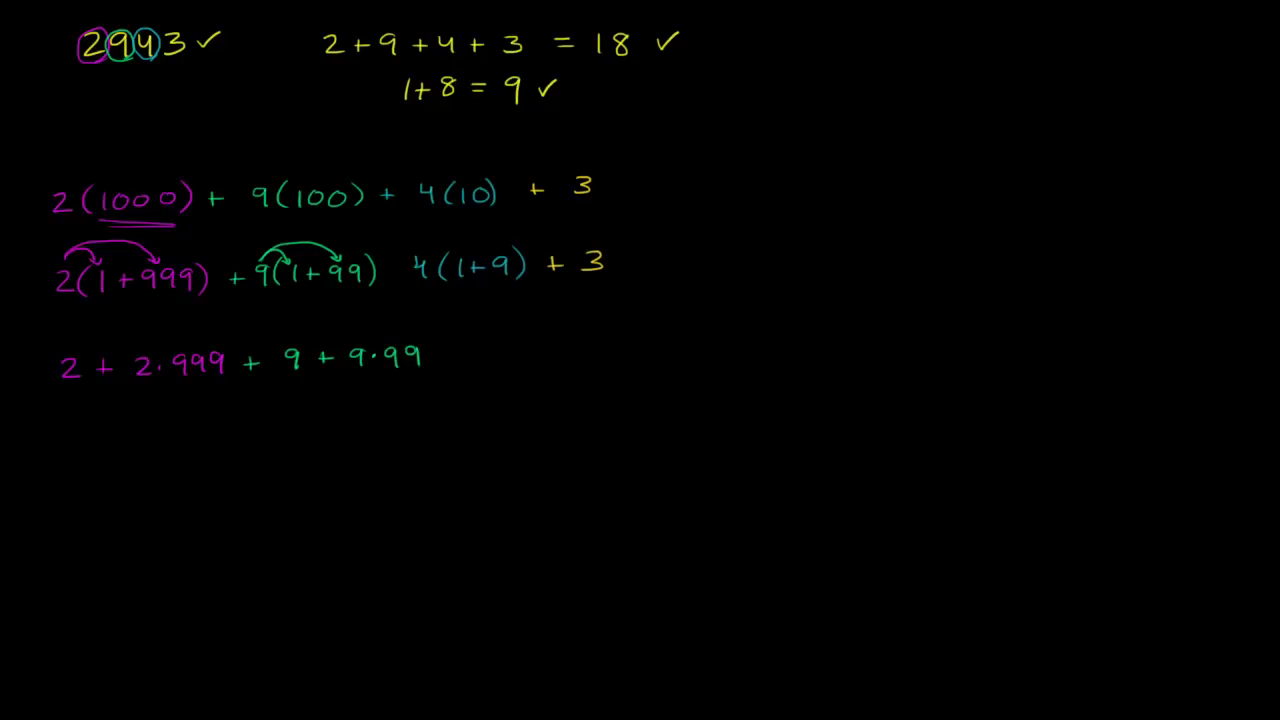 2943 ✓ 2 + 9 + 4 + 3 = 18 ✓
1 + 8 = 9 ✓
2(1000) + 9(100) + 4(10) + 3
2(1 + 999) + 9(1 + 99) 4(1+9) + 3
2 + 2·999 + 9 + 9·99